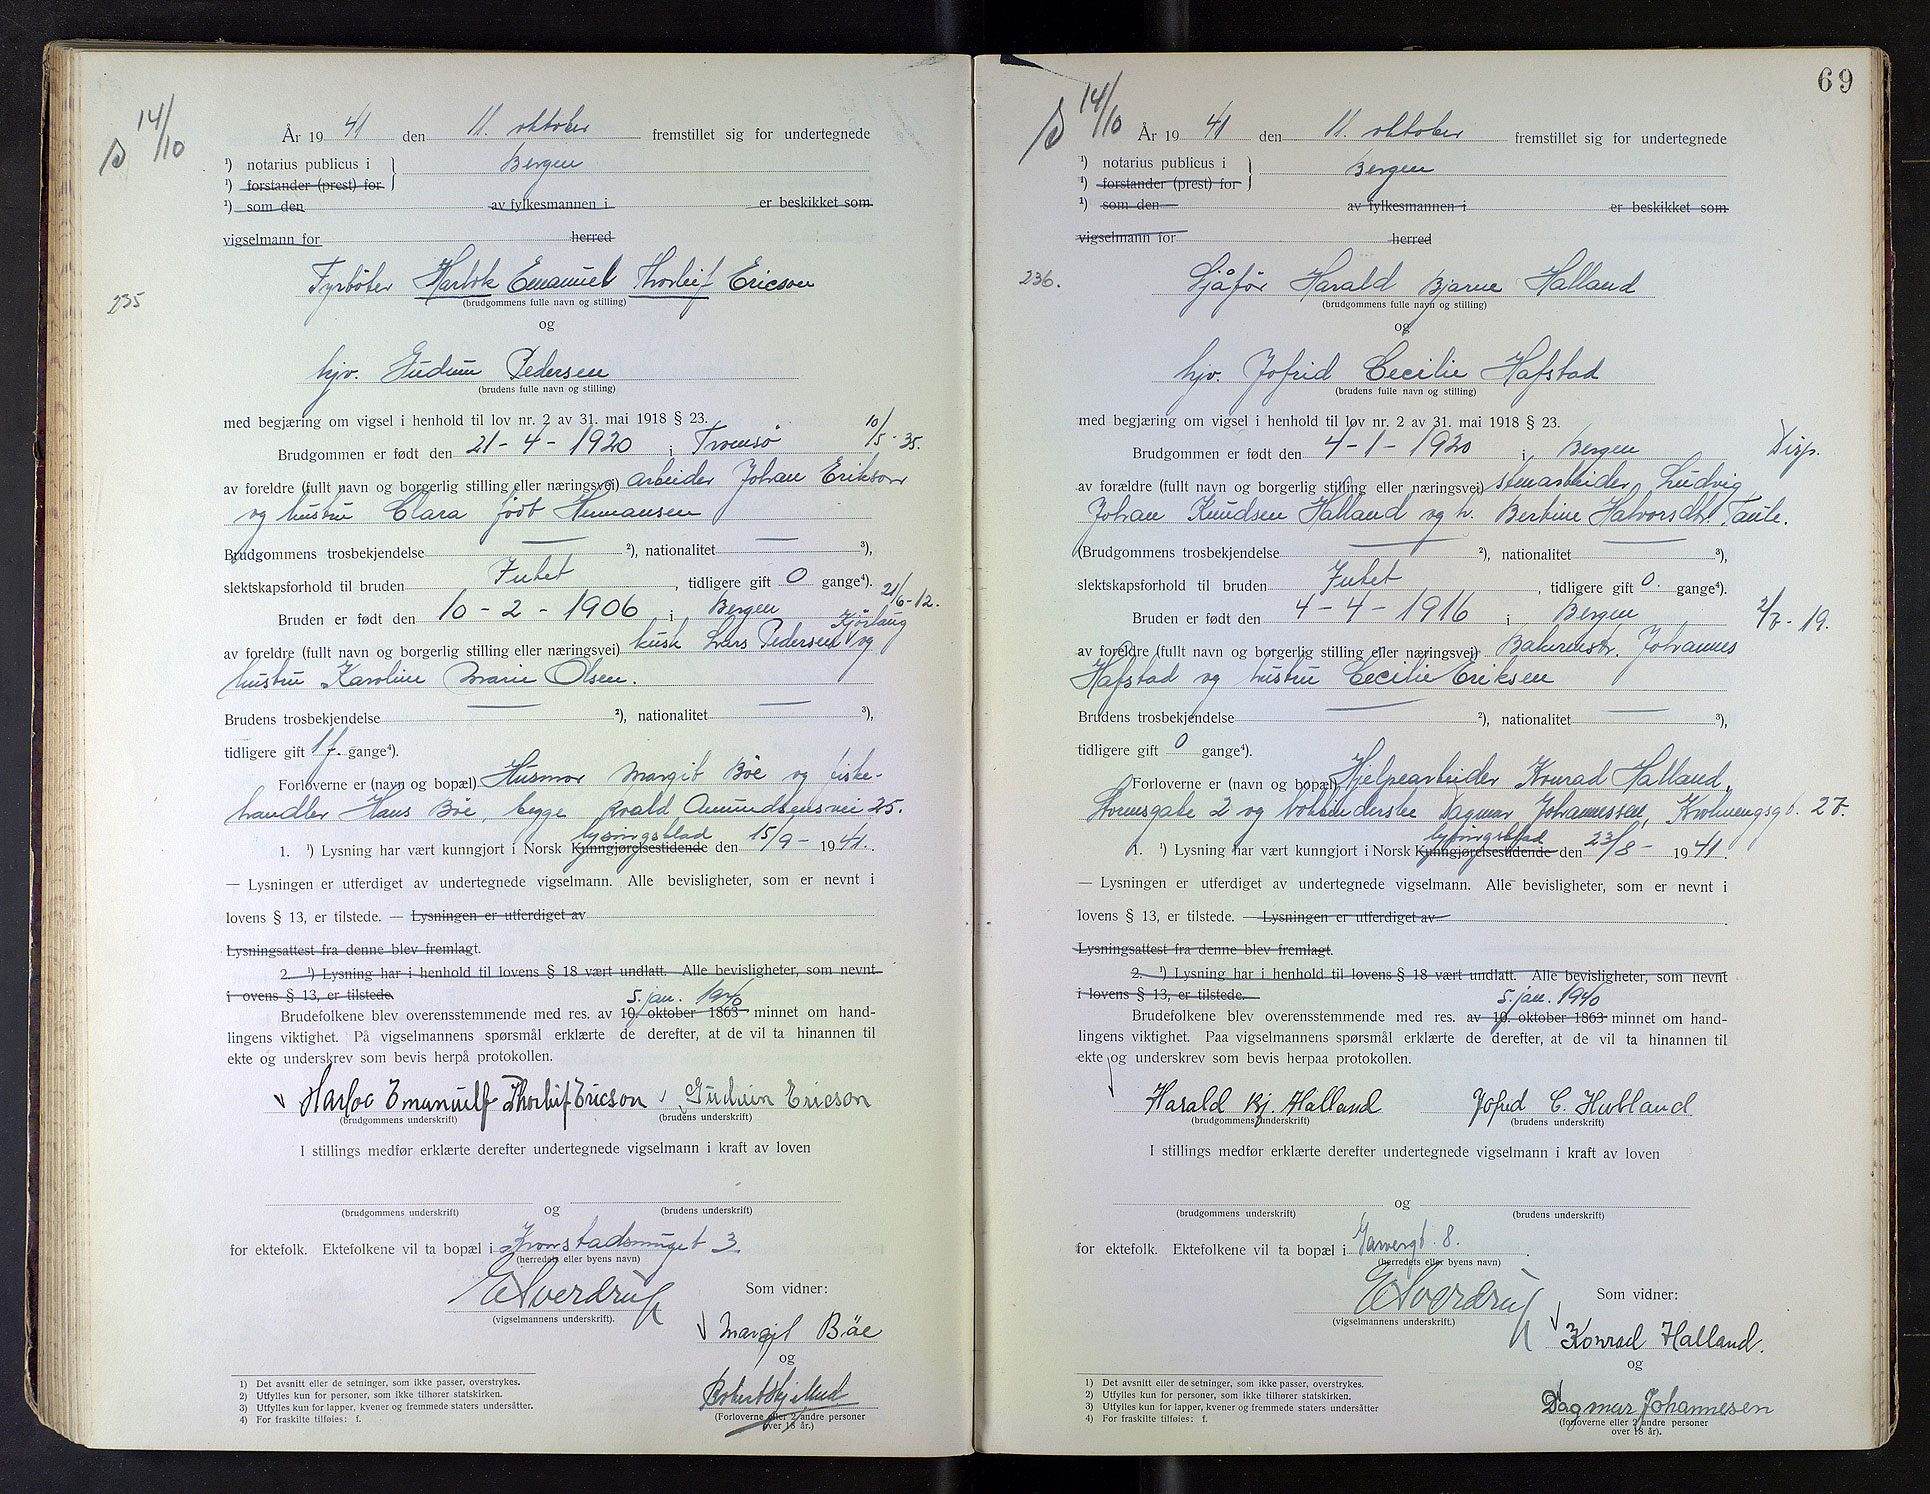 14/10
År 1941 den 11. oktober fremstillet sig for undertegnede
¹) notarius publicus i Bergen
¹) forstander (prest) for
¹) som den av fylkesmannen i er beskikket som
vigselmann for herred
235
Fyrbøter Harlok Emanuel Thorleif Ericson
(brudgommens fulle navn og stilling)
og
hjv. Gudrun Pedersen
(brudens fulle navn og stilling)
med begjæring om vigsel i henhold til lov nr. 2 av 31. mai 1918 § 23.
10/5-35.
Brudgommen er født den 21-4-1920 i Tromsø
av foreldre (fullt navn og borgerlig stilling eller næringsvei) arbeider Johan Erikson
og hustru Clara født Hermansen
Brudgommens trosbekjendelse — ²), nationalitet — ³),
slektskapsforhold til bruden Intet, tidligere gift 0 gange⁴).
21/6-12.
Bruden er født den 10-2-1906 i Bergen
Kjørlaug
av foreldre (fullt navn og borgerlig stilling eller næringsvei) kusk Lars Pedersen og
hustru Karoline Marie Olsen.
Brudens trosbekjendelse — ²), nationalitet — ³),
tidligere gift 1 f. gange⁴).
Forloverne er (navn og bopæl) Husmor Margit Böe og fiske-
handler Hans Böe, begge Roald Amundsensvei 25.
lysningsblad
1. ¹) Lysning har vært kunngjort i Norsk Kunngjørelsestidende den 15/9-1941.
— Lysningen er utferdiget av undertegnede vigselmann. Alle bevisligheter, som er nevnt i
lovens § 13, er tilstede. — Lysningen er utferdiget av
Lysningsattest fra denne blev fremlagt.
2. ¹) Lysning har i henhold til lovens § 18 vært undlatt. Alle bevisligheter, som nevnt
i ovens § 13, er tilstede.
5. jan. 1940
Brudefolkene blev overensstemmende med res. av 10. oktober 1863 minnet om hand-
lingens viktighet. På vigselmannens spørsmål erklærte de derefter, at de vil ta hinannen til
ekte og underskrev som bevis herpå protokollen.
Harloc Emanuel Thorleif Ericson Gudrun Ericson
(brudgommens underskrift) (brudens underskrift)
I stillings medfør erklærte derefter undertegnede vigselmann i kraft av loven
og
(brudgommens underskrift) (brudens underskrift)
for ektefolk. Ektefolkene vil ta bopæl i Kronstadsmuget 3
(herredets eller byens navn)
E Sverdrup
(vigselmannens underskrift).
Som vidner:
Margit Böe
og
(Forloverne eller 2 andre personer
over 18 år.)
1) Det avsnitt eller de setninger, som ikke passer, overstrykes.
2) Utfylles kun for personer, som ikke tilhører statskirken.
3) Utfylles kun for lapper, kvener og fremmede staters undersåtter.
4) For fraskilte tilføies: f.
69
14/10
År 1941 den 11. oktober fremstillet sig for undertegnede
¹) notarius publicus i Bergen
¹) forstander (prest) for
¹) som den av fylkesmannen i er beskikket som
vigselmann for herred
236.
Sjåfør Harald Bjarne Halland
(brudgommens fulle navn og stilling)
og
hjv. Jofrid Cecilie Hafstad
(brudens fulle navn og stilling)
med begjæring om vigsel i henhold til lov nr. 2 av 31. mai 1918 § 23.
Brudgommen er født den 4-1-1920 i Bergen Disp.
av forældre (fullt navn og borgerlig stilling eller næringsvei) stenarbeider Ludvig
Johan Knudsen Halland og h. Bertine Halvorsdtr. Taule.
(Brudgommens trosbekjendelse — ²), nationalitet — ³),
slektskapsforhold til bruden Intet, tidligere gift 0. gange⁴).
Bruden er født den 4-4-1916 i Bergen 2/7-19.
av foreldre (fullt navn og borgerlig stilling eller næringsvei) Bakermstr. Johannes
Hafstad og hustru Cecilie Eriksen
Brudens trosbekjendelse — ²), nationalitet — ³),
tidligere gift 0 gange⁴).
Forloverne er (navn og bopæl) Hjelpearbeider Konrad Halland,
2 og Dagmar Johannessen, 27.
lysningsblad
1. ¹) Lysning har vært kunngjort i Norsk Kunngjørelsestidende den 23/8-1941.
— Lysningen er utferdiget av undertegnede vigselmann. Alle bevisligheter, som er nevnt i
lovens § 13, er tilstede. — Lysningen er utferdiget av
Lysningsattest fra denne blev fremlagt.
2. ¹) Lysning har i henhold til lovens § 18 vært undlatt. Alle bevisligheter, som nevnt
i lovens § 13, er tilstede.
5. jan. 1940
Brudefolkene blev overensstemmende med res. av 10. oktober 1863 minnet om hand-
lingens viktighet. Paa vigselmannens spørsmål erklærte de derefter, at de vil ta hinannen til
ekte og underskrev som bevis herpaa protokollen.
Harald Bj. Halland Jofrid C. Halland
(brudgommens underskrift) (brudens underskrift)
I stillings medfør erklærte derefter undertegnede vigselmann i kraft av loven
og
(brudgommens underskrift) (brudens underskrift)
for ektefolk. Ektefolkene vil ta bopæl i 8.
(herredets eller byens navn)
E Sverdrup
(vigselmannens underskrift.)
Som vidner:
Konrad Halland.
og
Dagmar Johannesen
(forloverne eller 2 andre personer
over 18 år).
1) Det avsnitt eller de setninger, som ikke passer, overstrykes.
2) Utfylles kun for personer, som ikke tilhører statskirken.
3) Utfylles kun for lapper, kvener og fremmede staters undersåtter
4) For fraskilte tilføies: f.